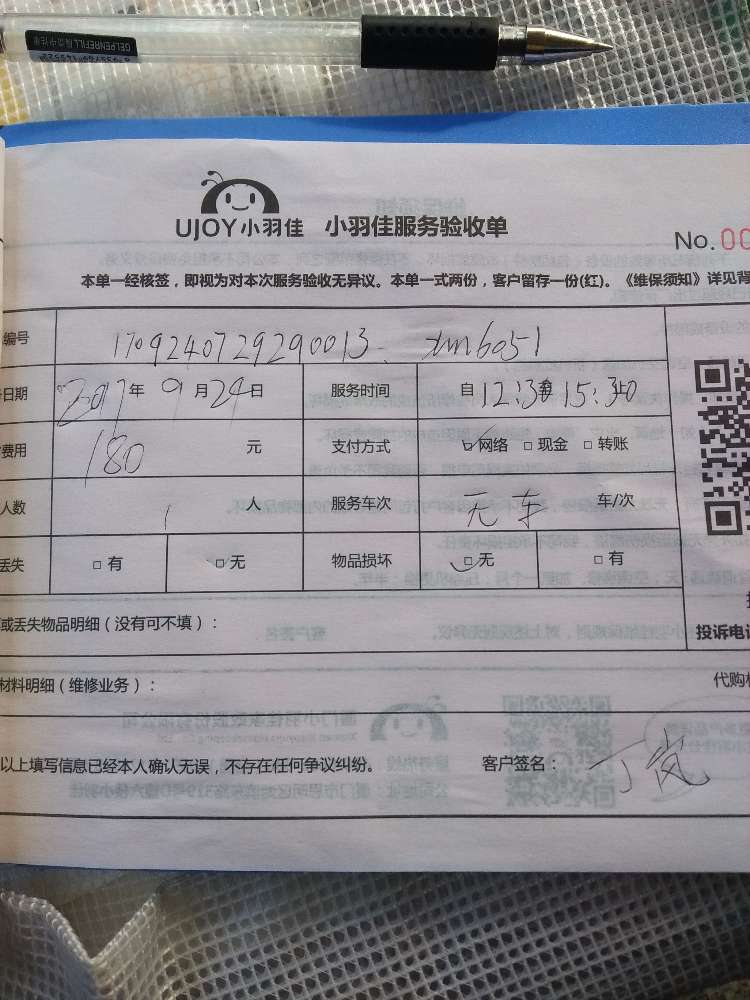 GELPENREFILL
UJOY小羽佳 小羽佳服务验收单
No. 00
本单一经核签，即视为对本次服务验收无异议。本单一式两份，客户留存一份(红)。《维保须知》详见背
编号 1709240729290013. xm6051
日期 2017年9月24日 服务时间 自12:30至15:30止
费用 180 元 支付方式 网络 现金 转账
人数 1 人 服务车次 无车 车/次
丢失 有 无 物品损坏 无 有
或丢失物品明细（没有可不填）：
投诉电话
材料明细（维修业务）： 代购材
以上填写信息已经本人确认无误，不存在任何争议纠纷。 客户签名： 丁岚